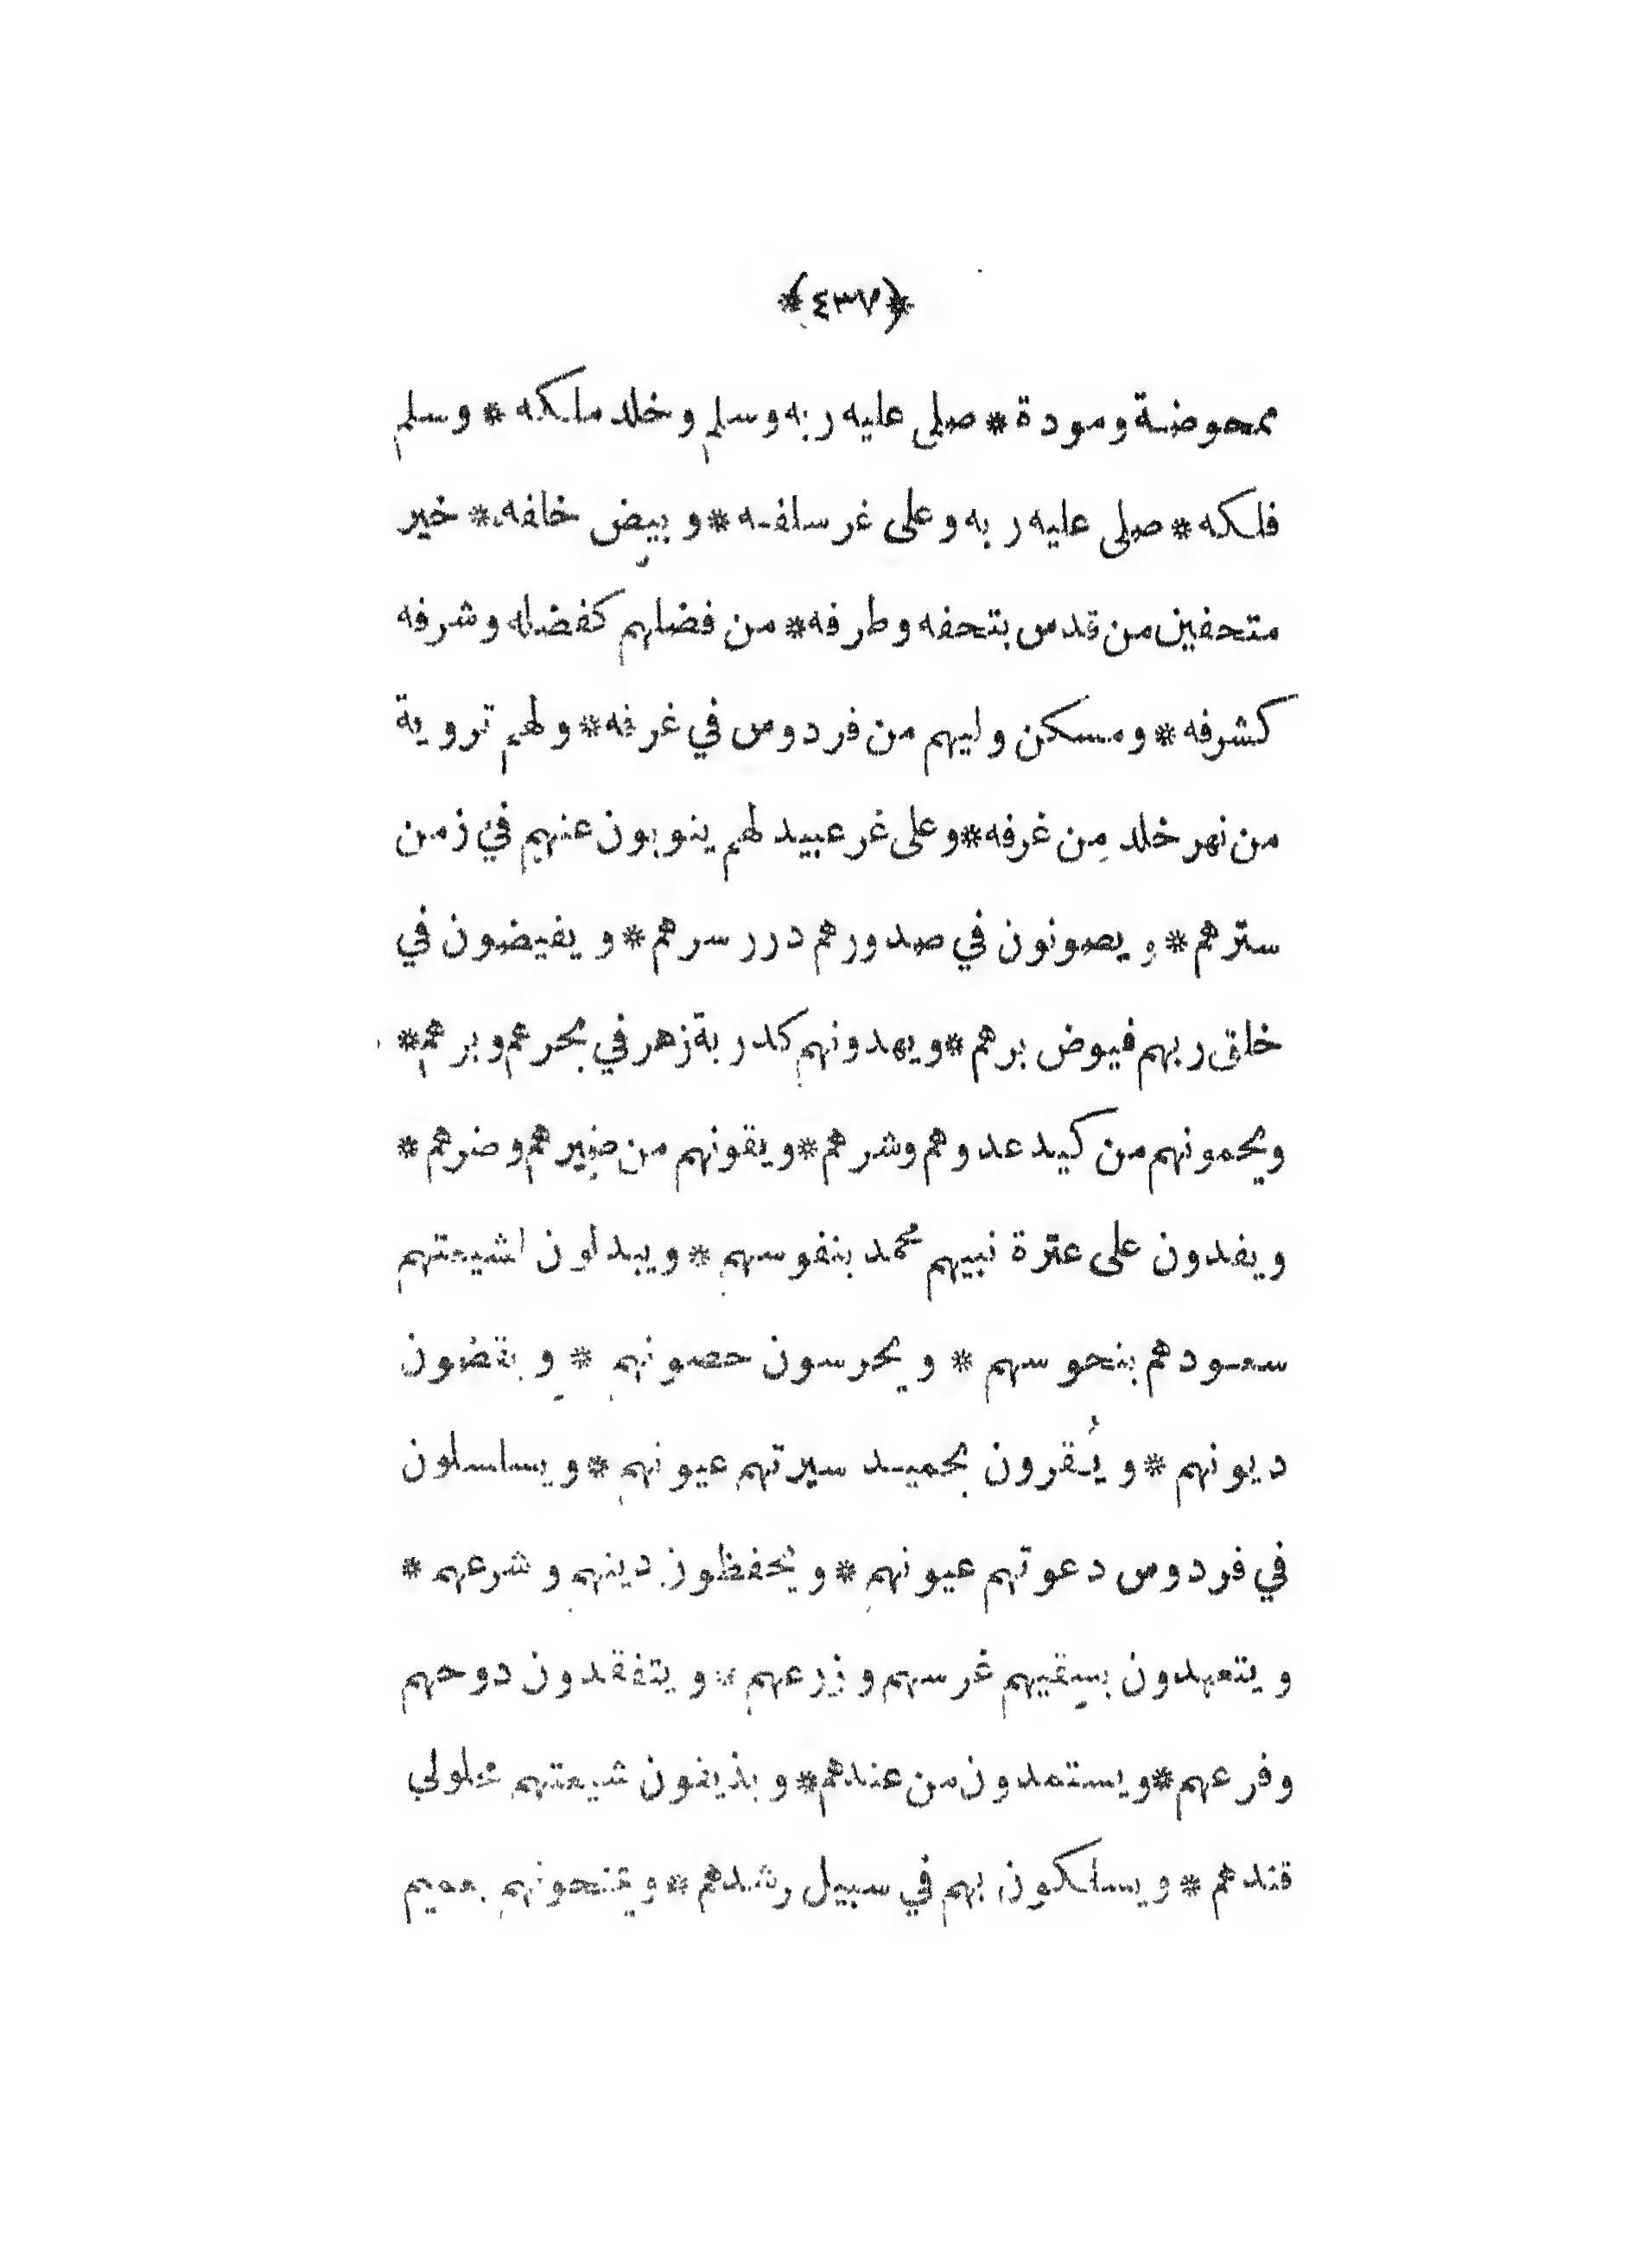 *(٤٣٧)*
ممحوضة ومودة * صلى عليه ربه وسلم وخلد ملكه * وسلم
فلكه * صلى عليه ربه وعلى غر سلفه * وبيض خلفه * خير
متحفين من قدس بتحفه وطرفه * من فضلهم كفضله وشرفه
كشرفه * ومسكن وليهم من فردوس في غرفه * ولهم تروية
من نهر خلد مِن غرفه * وعلى غر عبيد لهم ينوبون عنهم في زمن
سترهم * ويصونون في صدورهم درر سرهم * ويفيضون في
خلق ربهم فيوض برهم * ويهدونهم كدربة زهر في بحرهم وبرهم *
ويحمونهم من كيد عدوهم وشرهم * ويقونهم من ضيرهم وضرهم *
ويفدون على عترة نبيهم محمد بنفوسهم * ويبدلون لشيعتهم
سعودهم بنحوسهم * ويحرسون حصونهم * ويقضون
ديونهم * ويُقرون بحميد سيرتهم عيونهم * ويسلسلون
في فردوس دعوتهم عيونهم * ويحفظون دينهم وشرعهم *
ويتعهدون بسقيهم غرسهم وزرعهم * ويتفقدون دوحهم
وفرعهم * ويستمدون من عندهم * ويذيفون شيعتهم محلولي
قندهم * ويسلكون بهم في سبيل رشدهم * ويمنحونهم بعميم